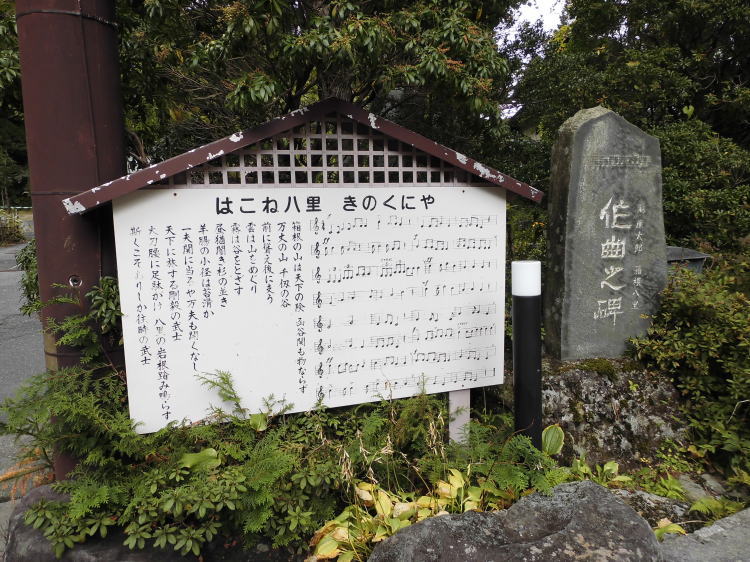 はこね八里 きのくにや
箱根の山は天下の険 函谷関も物ならず
万丈の山 千仞の谷
前に聳え後に支う
雲は山をめぐり
霧は谷をとざす
昼猶闇き杉の並き
羊腸の小径は苔滑か
一夫関に当るや万夫も開くなし
天下に旅する剛毅の武士
大刀腰に足駄がけ 八里の岩根踏み鳴らす
斯くこそありしか往時の武士
箱根八里
作曲之碑